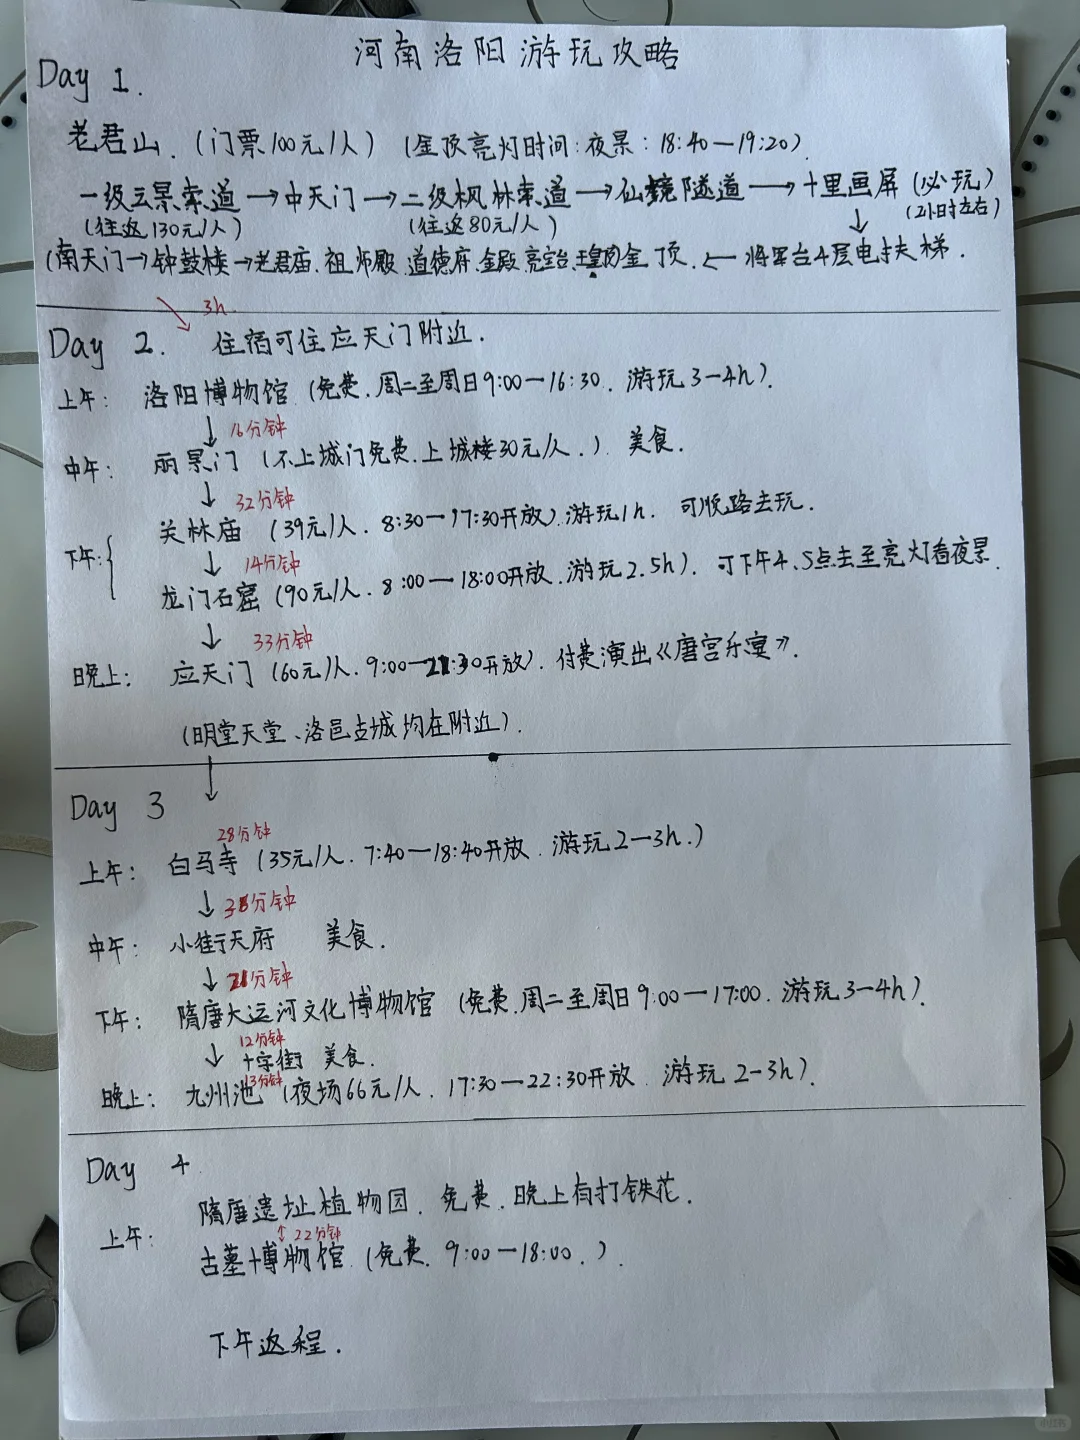 河南洛阳游玩攻略
Day 1.
老君山.（门票100元/人）（金顶亮灯时间:夜景:18:40—19:20）.
一级云景索道→中天门→二级枫林索道→仙境隧道→十里画屏（必玩）
（往返130元/人）（往返80元/人）（2小时左右）
↓
（南天门→钟鼓楼→老君庙.祖师殿.道德府.金殿.亮宝台.玉皇阁金顶.←将军台4层电扶梯.
3h.
Day 2. 住宿可住应天门附近.
上午: 洛阳博物馆（免费.周二至周日9:00—16:30. 游玩3-4h）.
↓16分钟
中午: 丽景门（不上城门免费.上城楼30元/人.）. 美食.
↓32分钟
关林庙（39元/人. 8:30—17:30开放）.游玩1h. 可顺路去玩.
下午:{ ↓14分钟
龙门石窟（90元/人. 8:00—18:00开放.游玩2.5h）. 可下午4、5点去至亮灯看夜景.
↓33分钟
晚上: 应天门（60元/人.9:00—21:30开放）. 付费演出《唐宫乐宴》.
（明堂天堂、洛邑古城均在附近）.
↓
Day 3
28分钟
上午: 白马寺（35元/人. 7:40—18:40开放. 游玩2—3h.）
↓
中午: 小街天府 美食.
↓
下午: 隋唐大运河文化博物馆（免费.周二至周日9:00—17:00. 游玩3—4h）.
12分钟
↓ 十字街 美食.
13分钟
晚上: 九州池（夜场66元/人. 17:30—22:30开放. 游玩2-3h）.
Day 4.
隋唐遗址植物园. 免费.晚上有打铁花.
上午: ↕22分钟
古墓博物馆.（免费. 9:00—18:00.）.
下午返程.